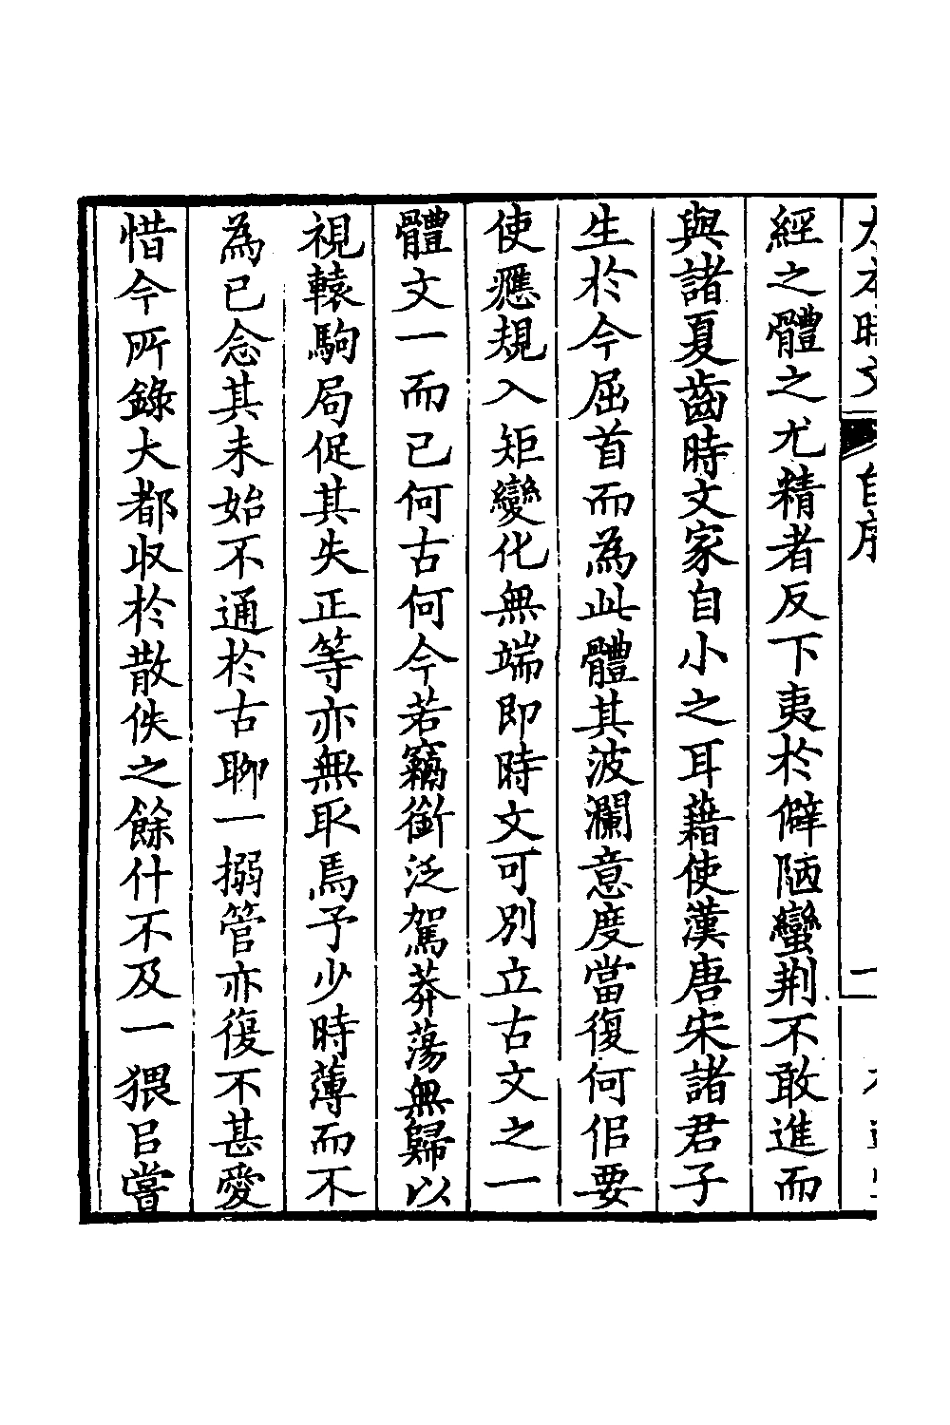 時文
自序
一
經之體之尤精者反下夷於僻陋蠻荆不敢進而
與諸夏齒時文家自小之耳藉使漢唐宋諸君子
生於今屈首而為此體其波瀾意度當復何侣要
使應規入矩變化無端即時文可別立古文之一
體文一而已何古何今若竊銜泛駕莽蕩無歸以
視轅駒局促其失正等亦無取焉予少時薄而不
為已念其未始不通於古聊一搦管亦復不甚愛
惜今所錄大都収於散佚之餘什不及一猥㠯嘗